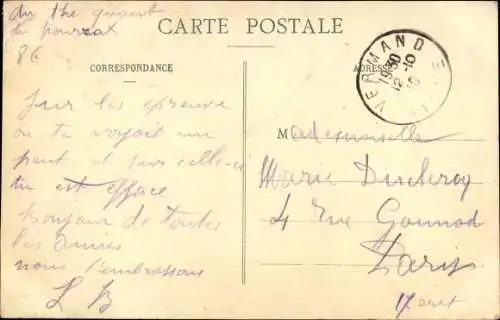 CARTE POSTALE
CORRESPONDANCE
ADRESSE
VERMAND
19 30
12-10
10
AISNE
86
Sur les épreuves
on te voyait un
peu et sur celle ce
tu est effacé
Bonjour de toutes
les amies
nous t'embrassons
L B
Mademoiselle
Marie Ducleroy
4 Rue Gounod
Paris
17 arrt